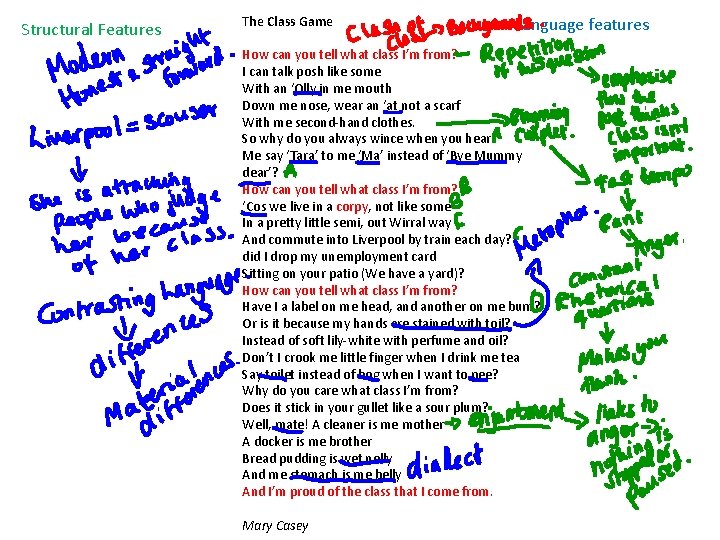 Structural Features
The Class Game
Language features
Class of
Class
Backgrounds
Modern
Honest & straight
forward
Liverpool = scouser
She is attacking
people who judge
her because
of her class.
Contrasting language
differences
Material
differences.
How can you tell what class I’m from?
I can talk posh like some
With an ‘Olly in me mouth
Down me nose, wear an ‘at not a scarf
With me second-hand clothes.
So why do you always wince when you hear
Me say ‘Tara’ to me ‘Ma’ instead of ‘Bye Mummy
dear’?
How can you tell what class I’m from?
‘Cos we live in a corpy, not like some
In a pretty little semi, out Wirral way
And commute into Liverpool by train each day?
did I drop my unemployment card
Sitting on your patio (We have a yard)?
How can you tell what class I’m from?
Have I a label on me head, and another on me bum?
Or is it because my hands are stained with toil?
Instead of soft lily-white with perfume and oil?
Don’t I crook me little finger when I drink me tea
Say toilet instead of bog when I want to pee?
Why do you care what class I’m from?
Does it stick in your gullet like a sour plum?
Well, mate! A cleaner is me mother
A docker is me brother
Bread pudding is wet nelly
And me stomach is me belly
And I’m proud of the class that I come from.
Mary Casey
A
B
B
C
C
Repetition
of the question
Rhyming
couplet.
Metaphor.
D
enjambment
dialect
emphasise
how the
poet thinks
class isn't
important.
Fast tempo
Rant
Anger.
Constant
rhetorical
questions
Makes you
think.
links to
anger
nothing is
stopped or
paused